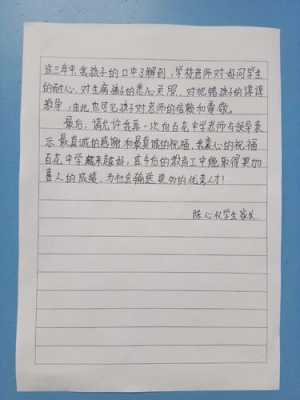 这三年中,我从孩子的口中了解到,学校老师对每问学生
的耐心,对生病孩子的悉心关照,对犯错孩子的谆谆
教导,由此也可见孩子对老师的信赖和尊敬。
最后,请允许我再一次向百花中学老师与领导表
示最真诚的感谢和最真诚的祝福,我衷心的祝福
百花中学越来越好,在今后的教育工中能取得更加
喜人的成绩,为社会输送更多的优秀人才!
学生家长